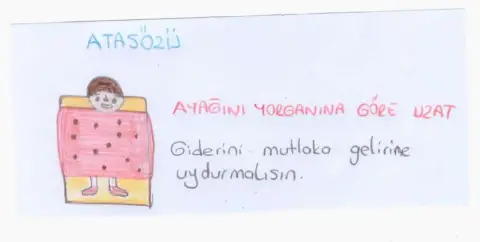 ATASÖZÜ
AYAĞINI YORGANINA GÖRE UZAT
Giderini mutlaka gelirine
uydurmalısın.